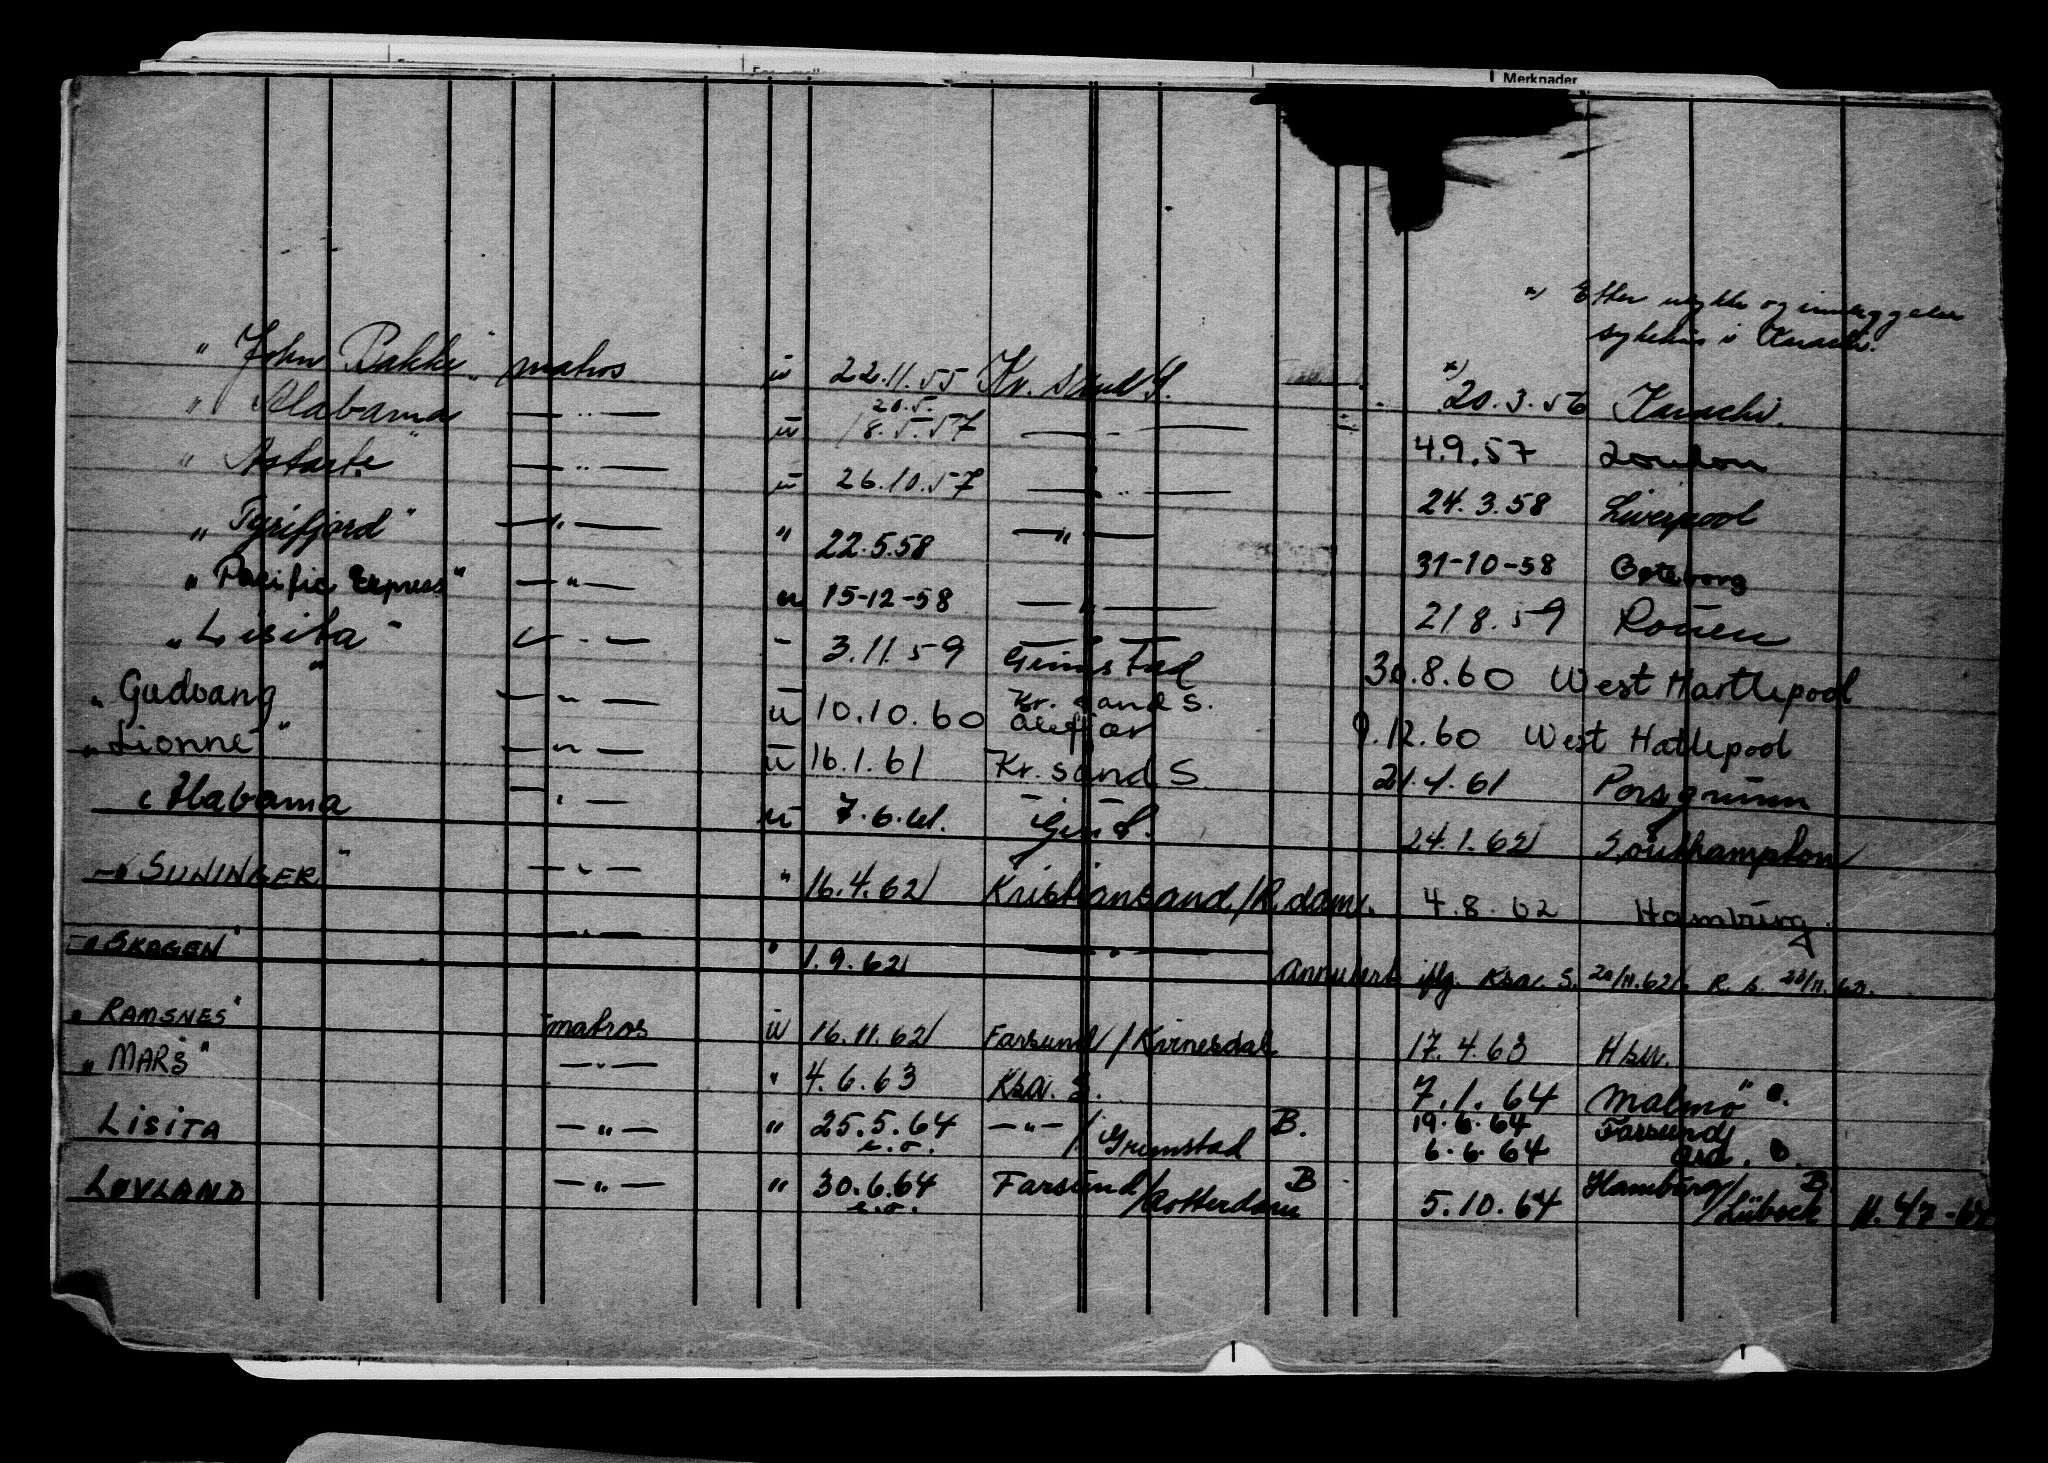 Merknader
x) Etter ulykke og innleggelse
sykehus i Karachi.
" John Bakke " matros u 22.11.55 Kr. sand S. x) 20.3.56 Karachi.
20.5.
" Alabama — " — u 18.5.57 — " — 4.9.57 London
" Astarte " — " — u 26.10.57 — " — 24.3.58 Liverpool
" Tyrifjord " — " — " 22.5.58 — " — 31-10-58 Gøteborg
" Pacific Express " — " — u 15-12-58 — " — 21.8.59 Rouen
" Lisita " — " — " 3.11.59 Grimstad 30.8.60 West Hartlepool
" Gudvang " — " — u 10.10.60 Kr. sand S. 9.12.60 West Hatlepool
Ålefjær
" Lionne " — " — u 16.1.61 Kr. sand S 21.4.61 Porsgrunn
" Alabama — " — u 7.6.61. Grimst. 24.1.62 Southampton
" SUNINGER " — " — " 16.4.62 Kristiansand / R.dam. 4.8.62 Hamburg.
" SKAGEN " — " — " 1.9.62 — " — Annullert iflg. Ksa. S. 20/11.62
" RAMSNES " matros u 16.11.62 Farsund / Kvinesdal 17.4.63
" MARS " — " — " 4.6.63 Ksa. S. 7.1.64 Malmö
LISITA — " — " 25.5.64 — " — / Grimstad B. 19.6.64 Farsund
e.o. 6.6.64
LØVLAND — " — " 30.6.64 Farsund / Rotterdam B 5.10.64 Hamburg / Lübeck B
e.o.